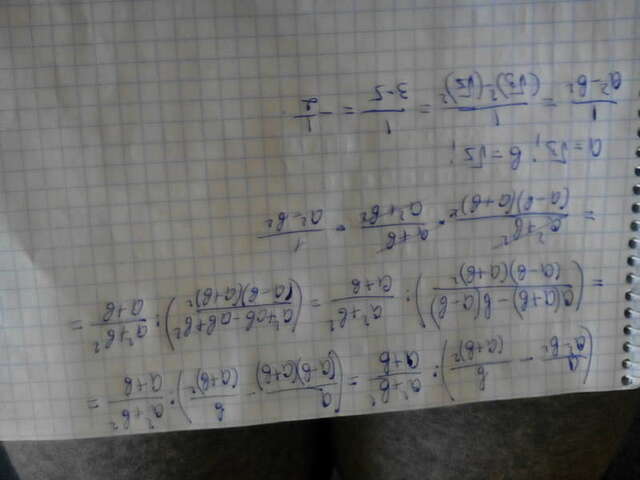 (a/(a²-b²) - b/(a+b)²) : (a²+b²)/(a+b) = (a/((a-b)(a+b)) - b/(a+b)²) : (a²+b²)/(a+b) =
= ((a(a+b)-b(a-b))/((a-b)(a+b)²)) : (a²+b²)/(a+b) = ((a²+ab-ab+b²)/((a-b)(a+b)²)) : (a²+b²)/(a+b) =
= (a²+b²)/((a-b)(a+b)²) · (a+b)/(a²+b²) = 1/(a²-b²)
a=√3; b=√5;
1/(a²-b²) = 1/((√3)²-(√5)²) = 1/(3-5) = -1/2